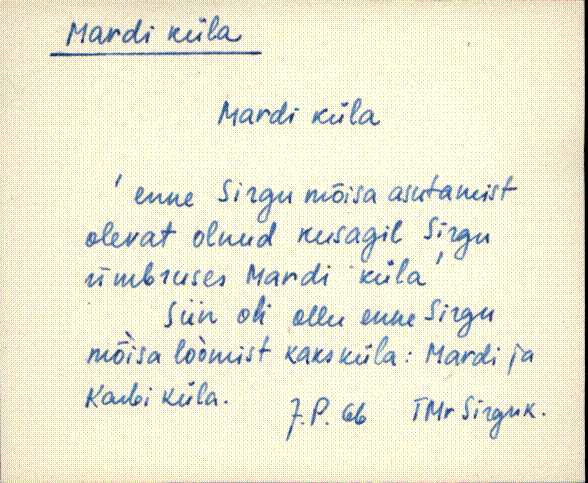 Mardi küla
Mardi küla
' enne Sirgu mõisa asutamist
olevat olnud kusagil Sirgu
ümbruses Mardi küla'
Siin oli ollu enne Sirgu
mõ̀isa loòmist kaks küla: Mardi ja
Karbi küla.
J.P. 66 TMr Sirguk.